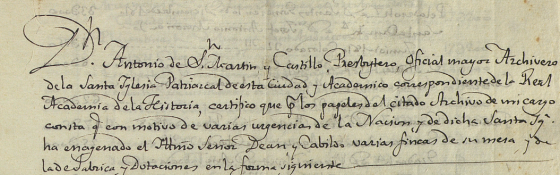 D.n Antonio de S.n Martin y Castillo, Presbytero, Oficial mayor Archivero
de la Santa Iglesia Patriarcal de esta Ciudad y Academico correspondiente de la Real
Academia de la Historia, certifico que p.r los papeles del citado Archivo de mi cargo
consta q.e con motivo de varias urgencias de la Nacion y de dicha Santa Ig.a
ha enagenado el Iltmo Señor Dean y Cabildo varias fincas de su mesa, y de
la de Fabrica y Dotaciones en la forma siguiente